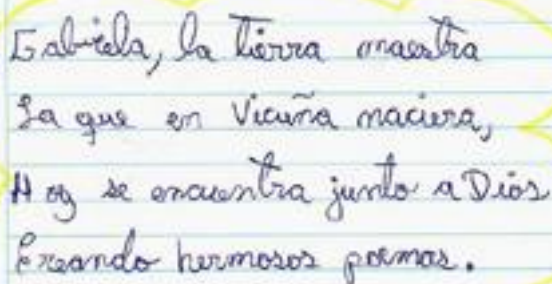 Gabriela, la tierra maestra
La que en Vicuña naciera,
Hoy se encuentra junto a Dios
Creando hermosos poemas.